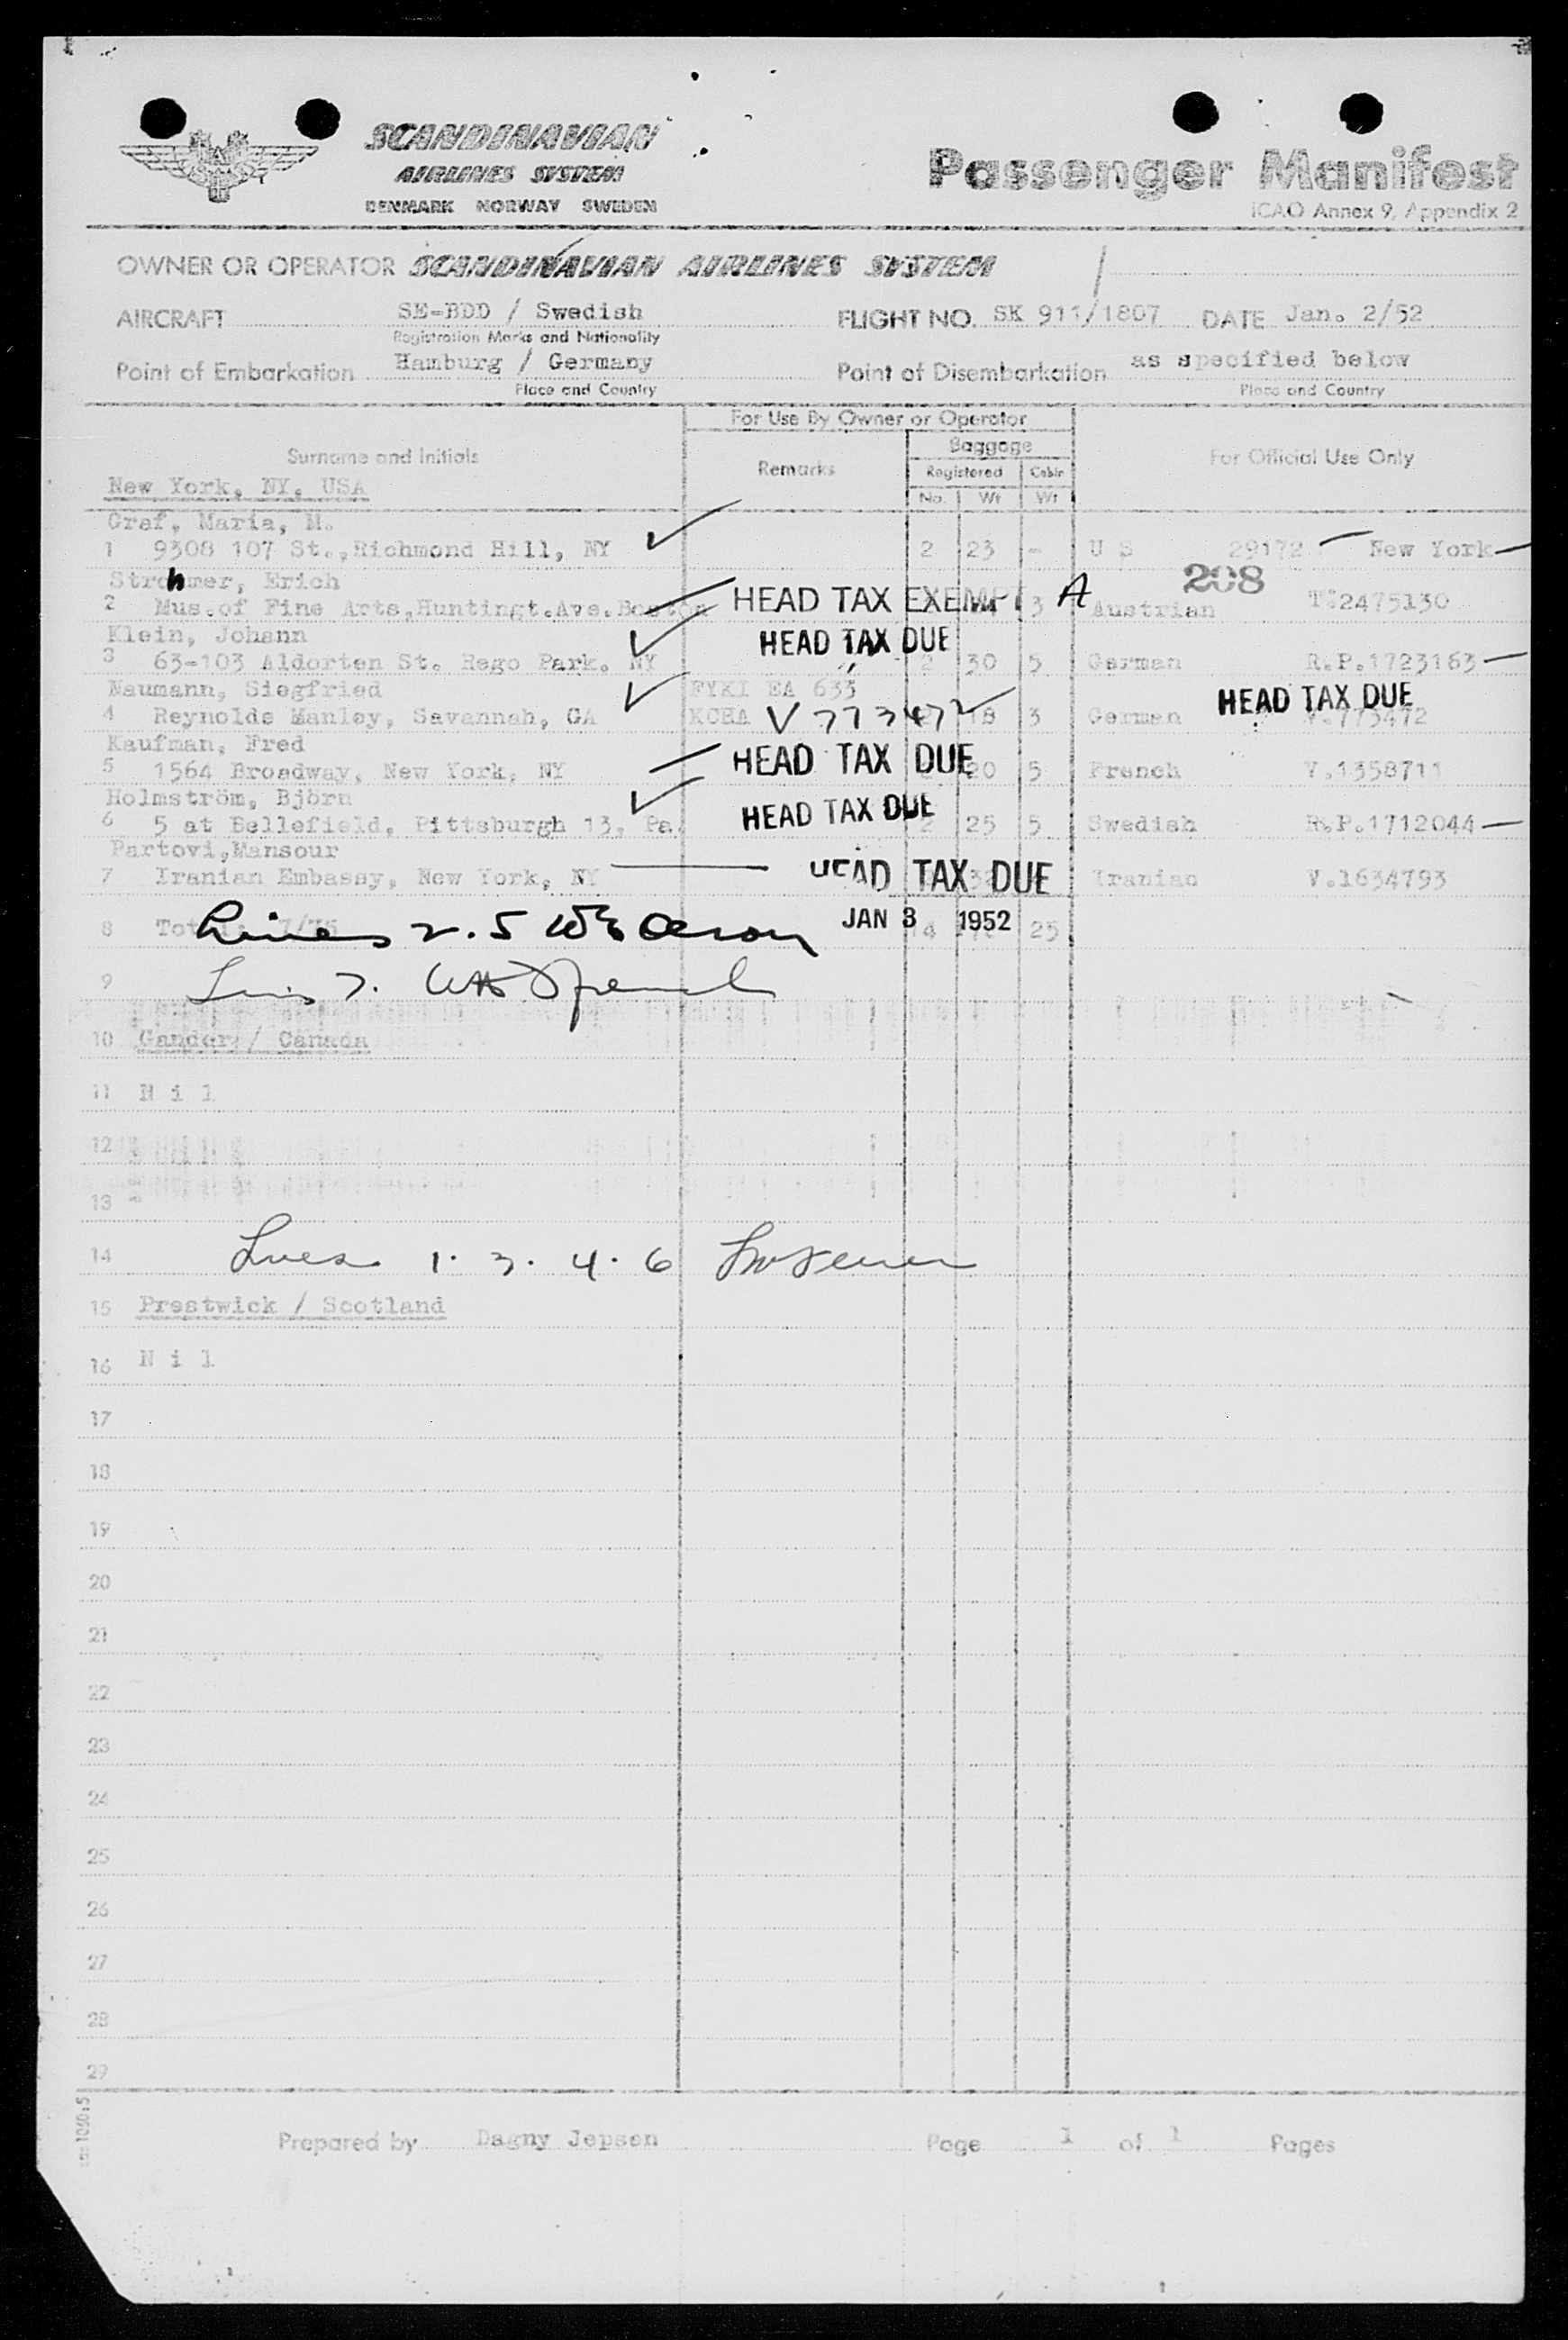 SCANDINAVIAN
AIRLINES SYSTEM
DENMARK NORWAY SWEDEN
Passenger Manifest
ICAO Annex 9, Appendix 2
OWNER OR OPERATOR SCANDINAVIAN AIRLINES SYSTEM
AIRCRAFT SE-BDD / Swedish FLIGHT NO. SK 911/1807 DATE Jan. 2/52
Registration Marks and Nationality
Point of Embarkation Hamburg / Germany Point of Disembarkation as specified below
Place and Country Place and Country
For Use By Owner or Operator
Baggage
Surname and Initials Remarks Registered Cabin For Official Use Only
New York, NY, USA No. Wt Wt
Graf, Maria, M.
1 9308 107 St.,Richmond Hill, NY 2 23 - U S 29172 New York
Strohmer, Erich 208
2 Mus.of Fine Arts,Huntingt.Ave.Boston HEAD TAX EXEMPT 3 A Austrian T:2475130
Klein, Johann HEAD TAX DUE
3 63-103 Aldorten St. Rego Park. NY 2 30 5 German R.P.1723163
Naumann, Siegfried FYKI EA 633 HEAD TAX DUE
4 Reynolds Manley, Savannah, GA KCHA V 773472 18 3 German V.773472
Kaufman, Fred HEAD TAX DUE
5 1564 Broadway, New York, NY 20 5 French V.1358711
Holmström, Björn HEAD TAX DUE
6 5 at Bellefield, Pittsburgh 13, Pa. 2 25 5 Swedish R.P.1712044
Partovi,Mansour HEAD TAX DUE
7 Iranian Embassy, New York, NY Iranian V.1634793
8 JAN 3 1952 25
9
10 Gander / Canada
11 N i l
12
13
14 Lines 1. 3. 4. 6
15 Prestwick / Scotland
16 N i l
17
18
19
20
21
22
23
24
25
26
27
28
29
Prepared by Dagny Jepsen Page 1 of 1 Pages